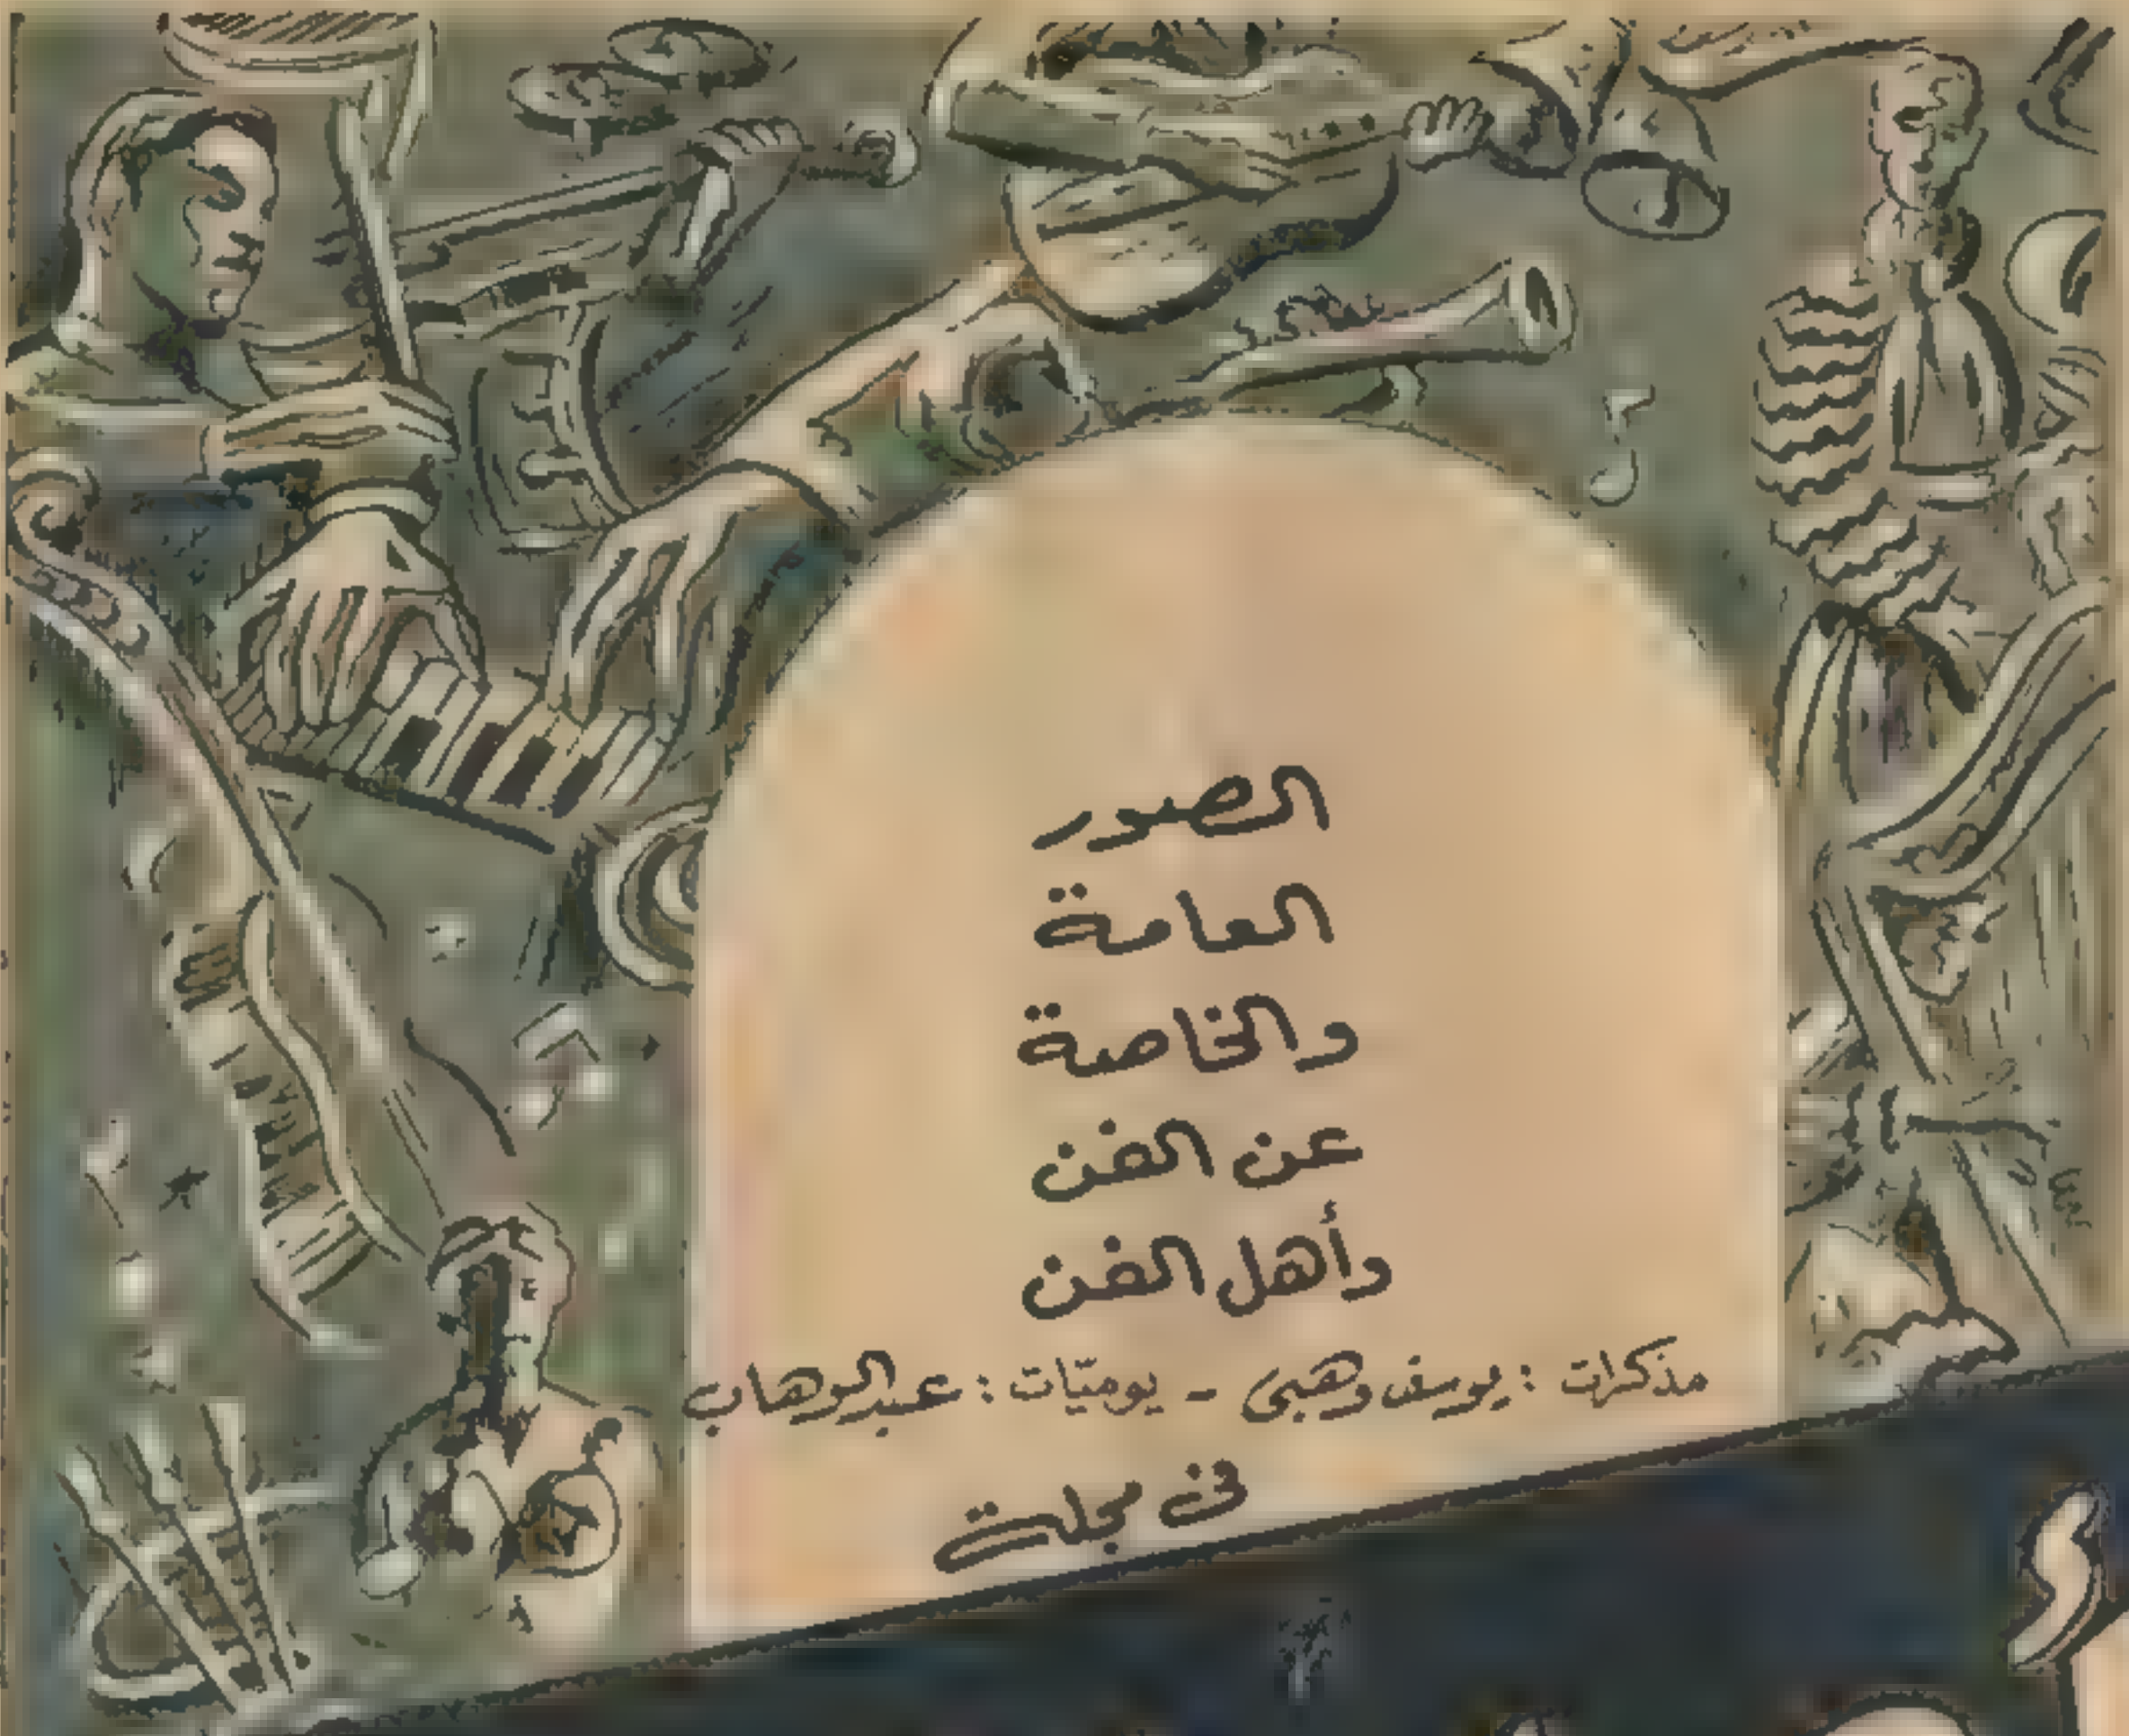 الصور
العامة
والخاصة
عن الفن
وأهل الفن
مذكرات : يوسف وهبى - يوميّات : عبد الوهاب
فى مجلة